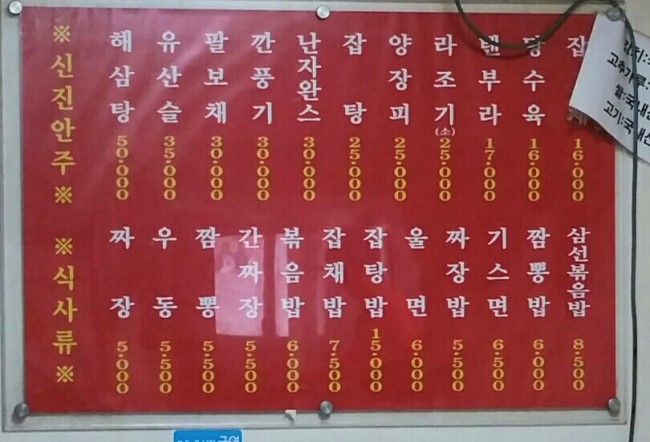 ※신진안주※
해삼탕 50.000
유산슬 35.000
팔보채 30.000
깐풍기 30.000
난자완스 30.000
잡탕 25.000
양장피 25.000
라조기(소) 25.000
텐부라 17.000
탕수육 16.000
잡 16.000
※식사류※
짜장 5.000
우동 5.500
짬뽕 5.500
간짜장 5.500
볶음밥 6.000
잡채밥 7.500
잡탕밥 15.000
울면 6.000
짜장밥 5.500
기스면 6.500
짬뽕밥 6.000
삼선볶음밥 8.500
고추가루:
쌀:국내
고기:국내산